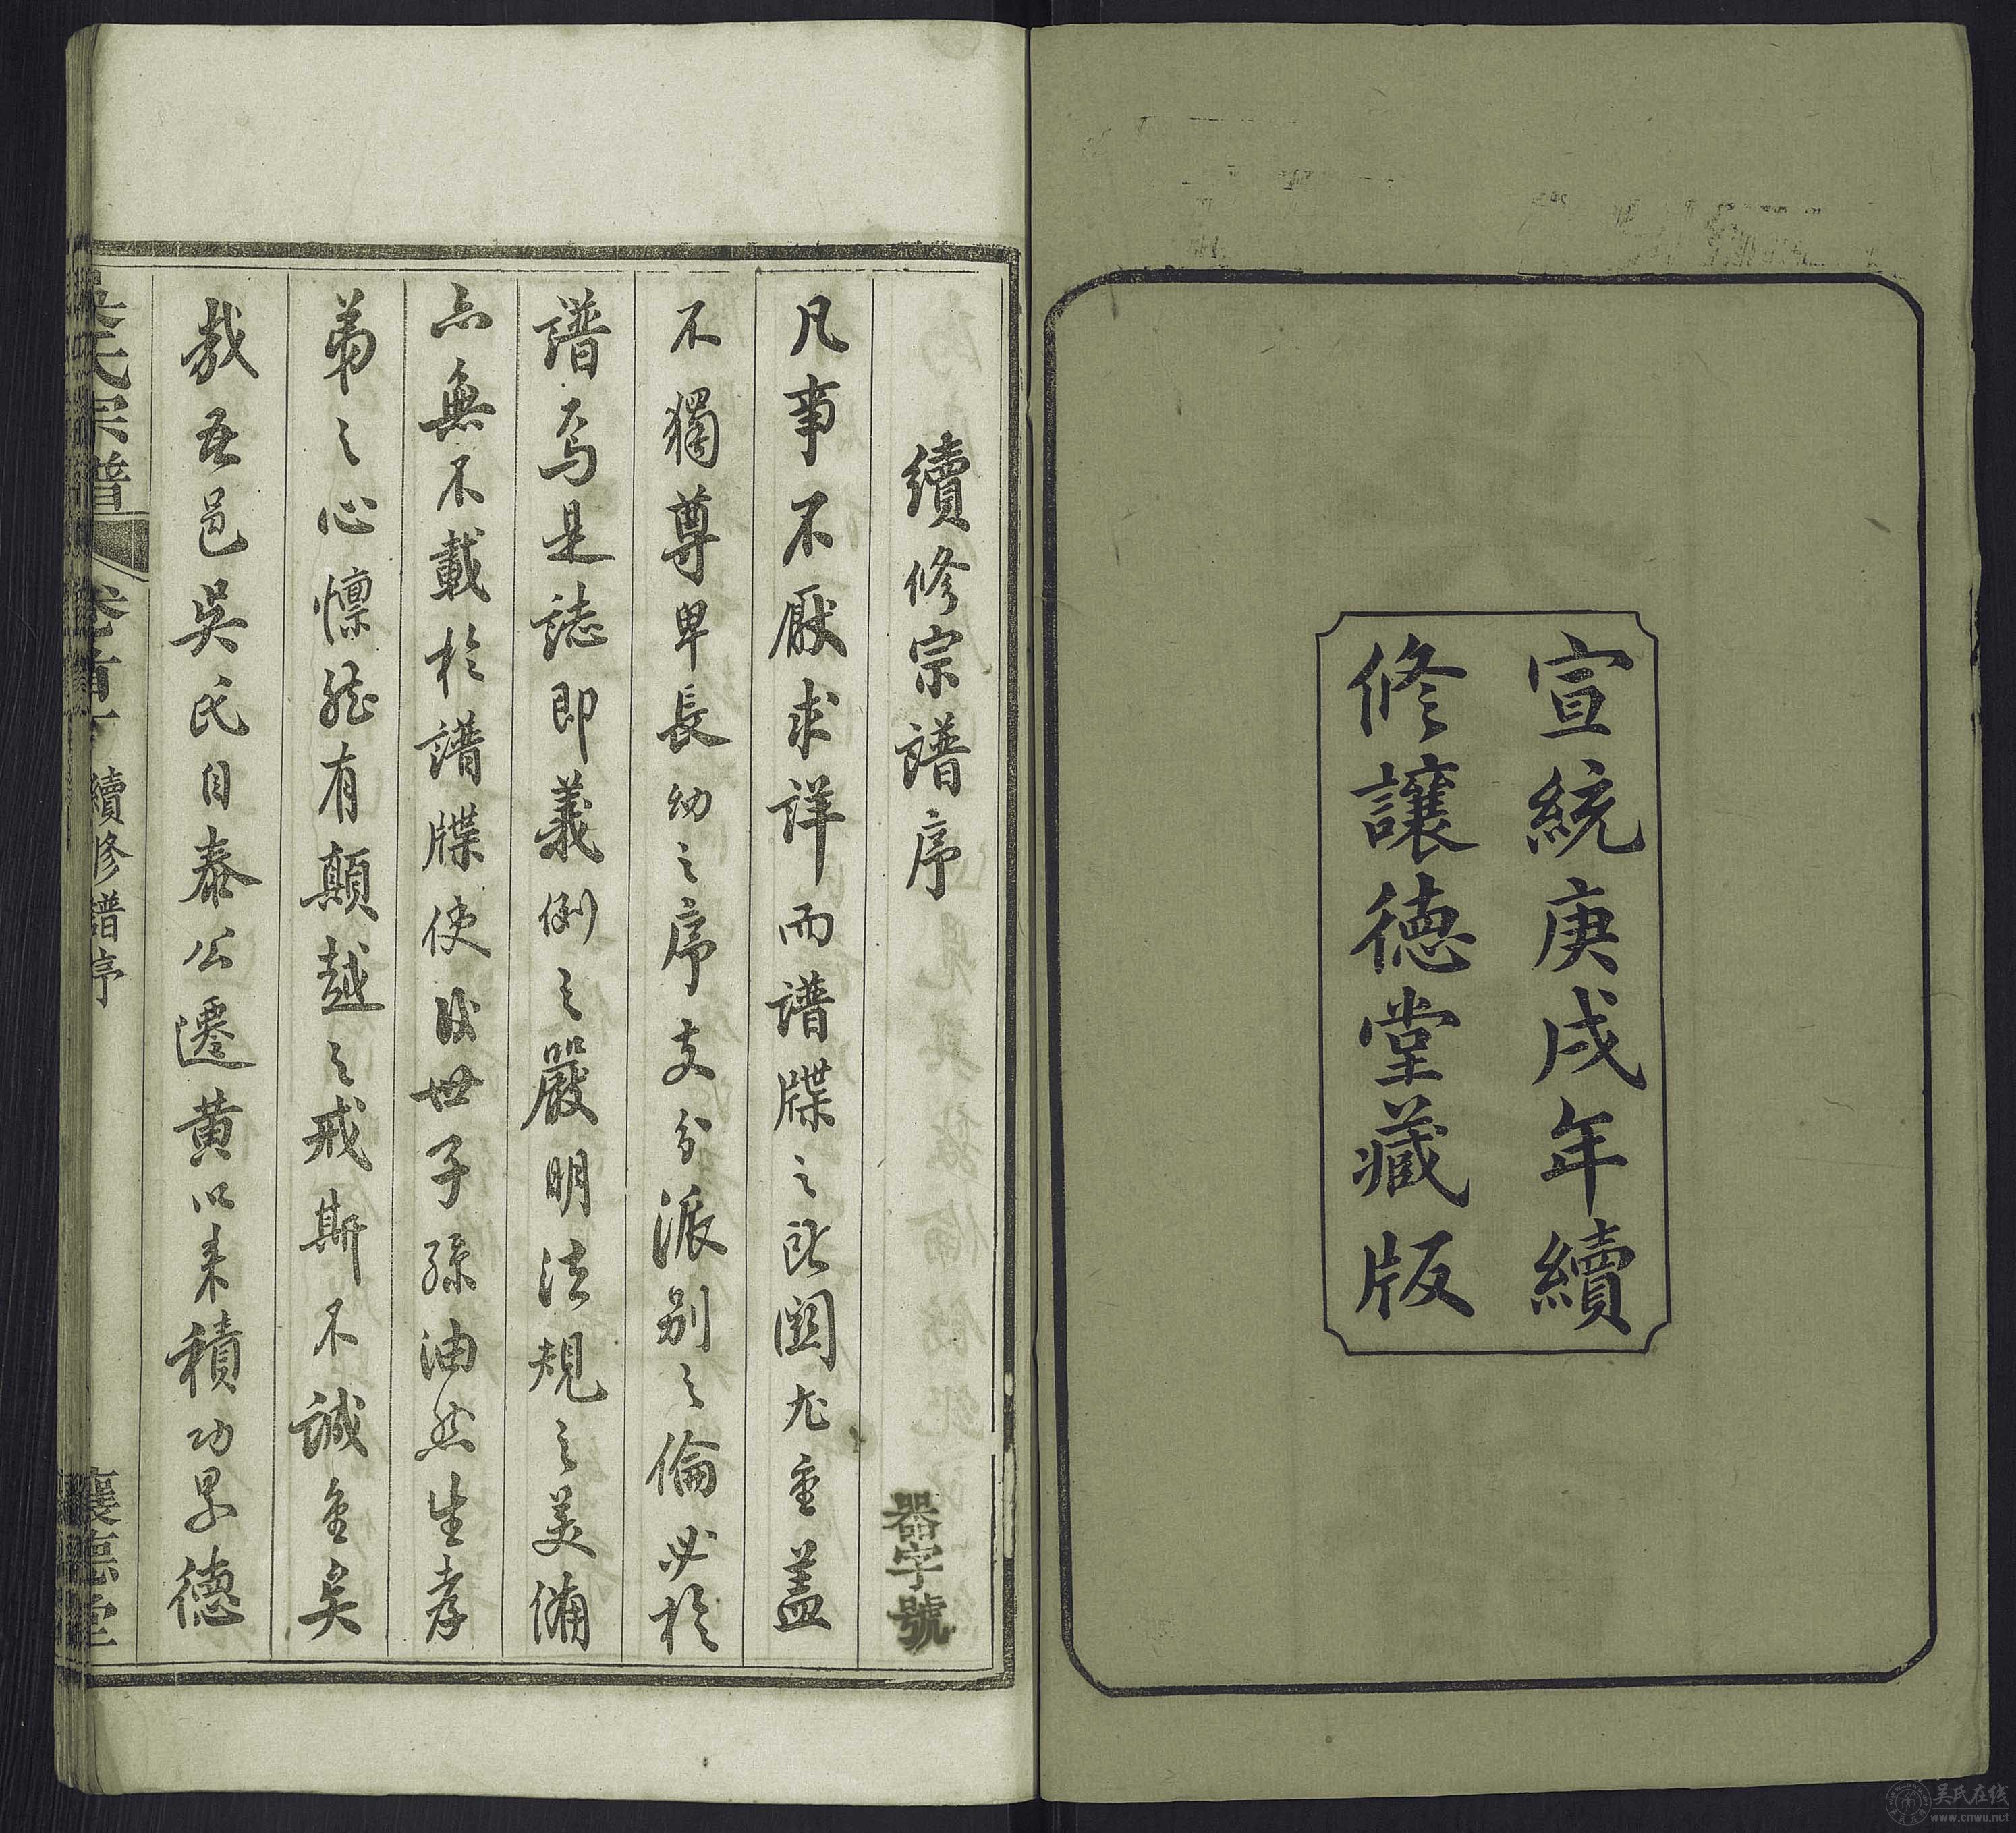 宣統庚戌年續
修讓德堂藏版
續修宗譜序
器字號
凡事不厭求詳而譜牒之所関尤重蓋
不獨尊卑長幼之序支分派別之倫必於
譜焉是誌即義例之嚴明法規之美備
亦無不載於譜牒使後世子孫油然生孝
弟之心懍然有顛越之戒斯不誠重矣
哉吾邑吳氏自泰公遷黃以来積功累德
吳氏宗譜
卷首下
續修譜序
讓德堂
吴氏在线
www.cnwu.net